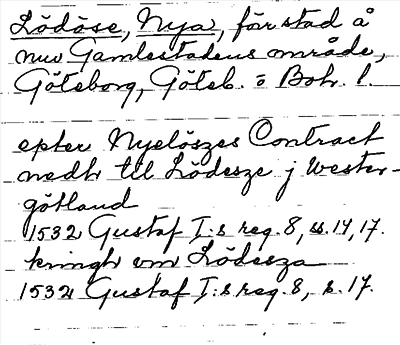 Lödöse, Nya, förstad å
nuv Gamlestadens område,
Göteborg, Göteb. o Boh. l.
epter Nyelöszes Contract
nedh till Lödesze j Wester-
götland
1532 Gustaf I:s reg. 8, ss. 14, 17.
kringh om Lödesza
1532 Gustaf I:s reg. 8, s. 17.